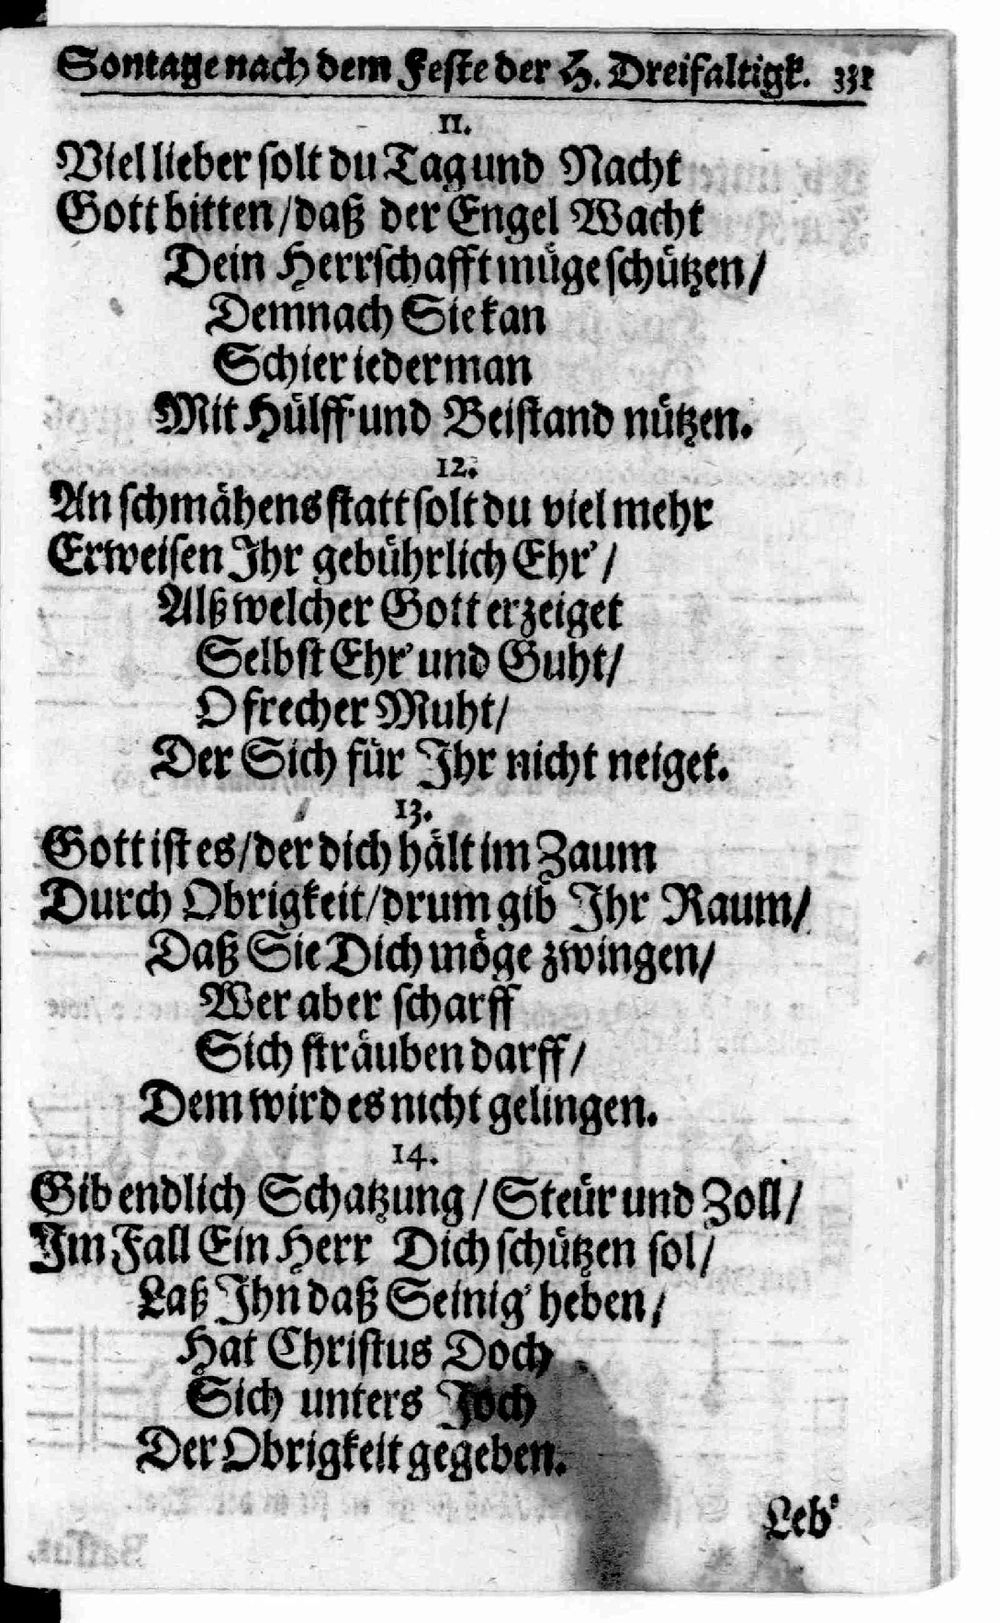 Sontage nach dem Feste der H. Dreifaltigk. 331
11.
Viel lieber solt du Tag und Nacht
Gott bitten/daß der Engel Wacht
Dein Herrschafft müge schützen/
Demnach Sie kan
Schier iederman
Mit Hülff' und Beistand nützen.
12.
An schmähens statt solt du viel mehr
Erweisen Ihr gebührlich Ehr'/
Alß welcher Gott erzeiget
Selbst Ehr' und Guht/
O frecher Muht/
Der Sich für Ihr nicht neiget.
13.
Gott ist es/der dich hält im Zaum
Durch Obrigkeit/drum gib Ihr Raum/
Daß Sie Dich möge zwingen/
Wer aber scharff
Sich sträuben darff/
Dem wird es nicht gelingen.
14.
Gib endlich Schatzung/Steür und Zoll/
Im Fall Ein Herr Dich schützen sol/
Laß Ihn daß Seinig' heben/
Hat Christus Doch
Sich unters Joch
Der Obrigkeit gegeben.
Leb'